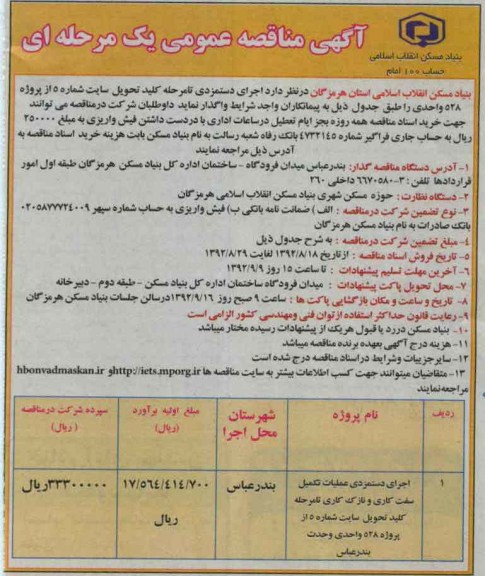 آگهی مناقصه عمومی یک مرحله ای
بنیاد مسکن انقلاب اسلامی
حساب ۱۰۰ امام
بنیاد مسکن انقلاب اسلامی استان هرمزگان درنظر دارد اجرای دستمزدی تامرحله کلید تحویل سایت شماره ۵ از پروژه
۵۲۸ واحدی را طبق جدول ذیل به پیمانکاران واجد شرایط واگذار نماید داوطلبان شرکت درمناقصه می توانند
جهت خرید اسناد مناقصه همه روزه بجز ایام تعطیل درساعات اداری با دردست داشتن فیش واریزی به مبلغ ۲۵۰۰۰۰
ریال به حساب جاری فراگیر شماره ۴۷۳۲۱۴۵ بانک رفاه شعبه رسالت به نام بنیاد مسکن بابت هزینه خرید اسناد مناقصه به
آدرس ذیل مراجعه نمایند
۱- آدرس دستگاه مناقصه گذار: بندرعباس میدان فرودگاه - ساختمان اداره کل بنیاد مسکن هرمزگان طبقه اول امور
قراردادها تلفن: ۳-۶۶۷۰۵۸۰ داخلی ۲۶۰
۲- دستگاه نظارت: حوزه مسکن شهری بنیاد مسکن انقلاب اسلامی هرمزگان
۳- نوع تضمین شرکت درمناقصه : الف) ضمانت نامه بانکی ب) فیش واریزی به حساب شماره سپهر ۰۲۰۵۸۷۷۷۲۴۰۰۹
بانک صادرات به نام بنیاد مسکن هرمزگان
۴- مبلغ تضمین شرکت درمناقصه : به شرح جدول ذیل
۵- تاریخ فروش اسناد مناقصه : ازتاریخ ۱۳۹۲/۸/۱۸ لغایت ۱۳۹۲/۸/۲۹
۶- آخرین مهلت تسلیم پیشنهادات : تا ساعت ۱۵ روز ۱۳۹۲/۹/۹
۷- محل تحویل پاکت پیشنهادات : میدان فرودگاه ساختمان اداره کل بنیاد مسکن - طبقه دوم - دبیرخانه
۸- تاریخ و ساعت و مکان بازگشایی پاکت ها : ساعت ۹ صبح روز ۱۳۹۲/۹/۱۶ درسالن جلسات بنیاد مسکن هرمزگان
۹- رعایت قانون حداکثر استفاده از توان فنی ومهندسی کشور الزامی است
۱۰- بنیاد مسکن دررد یا قبول هریک از پیشنهادات رسیده مختار میباشد
۱۱- هزینه درج آگهی بعهده برنده مناقصه میباشد
۱۲- سایر جزییات وشرایط دراسناد مناقصه درج شده است
۱۳- متقاضیان میتوانند جهت کسب اطلاعات بیشتر به سایت مناقصه ها http://iets.mporg.ir و hbonvadmaskan.ir
مراجعه نمایند
ردیف
نام پروژه
شهرستان محل اجرا
مبلغ اولیه برآورده (ریال)
سپرده شرکت درمناقصه (ریال)
۱
اجرای دستمزدی عملیات تکمیل
سفت کاری و نازک کاری تامرحله
کلید تحویل سایت شماره ۵ از
پروژه ۵۲۸ واحدی وحدت
بندرعباس
بندرعباس
۱۷/۵۶۴/۴۱۴/۷۰۰
ریال
۳۳۳۰۰۰۰۰۰ریال